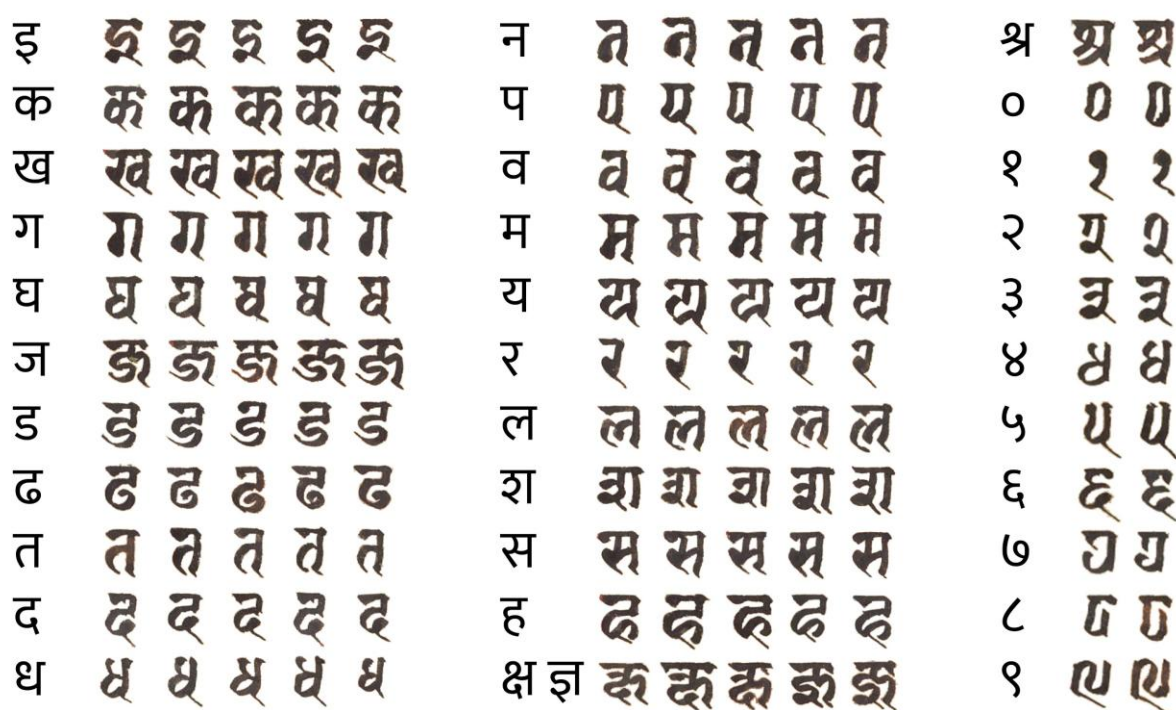 इ इ इ इ इ इ
क क क क क क
ख ख ख ख ख ख
ग ग ग ग ग ग
घ घ घ घ घ घ
ज ज ज ज ज ज
ड ड ड ड ड ड
ढ ढ ढ ढ ढ ढ
त त त त त त
द द द द द द
ध ध ध ध ध ध
न न न न न न
प प प प प प
व व व व व व
म म म म म म
य य य य य य
र र र र र र
ल ल ल ल ल ल
श श श श श श
स स स स स स
ह ह ह ह ह ह
क्ष ज्ञ क्ष क्ष क्ष ज्ञ ज्ञ
श्र श्र श्र
० ० ०
१ १ १
२ २ २
३ ३ ३
४ ४ ४
५ ५ ५
६ ६ ६
७ ७ ७
८ ८ ८
९ ९ ९